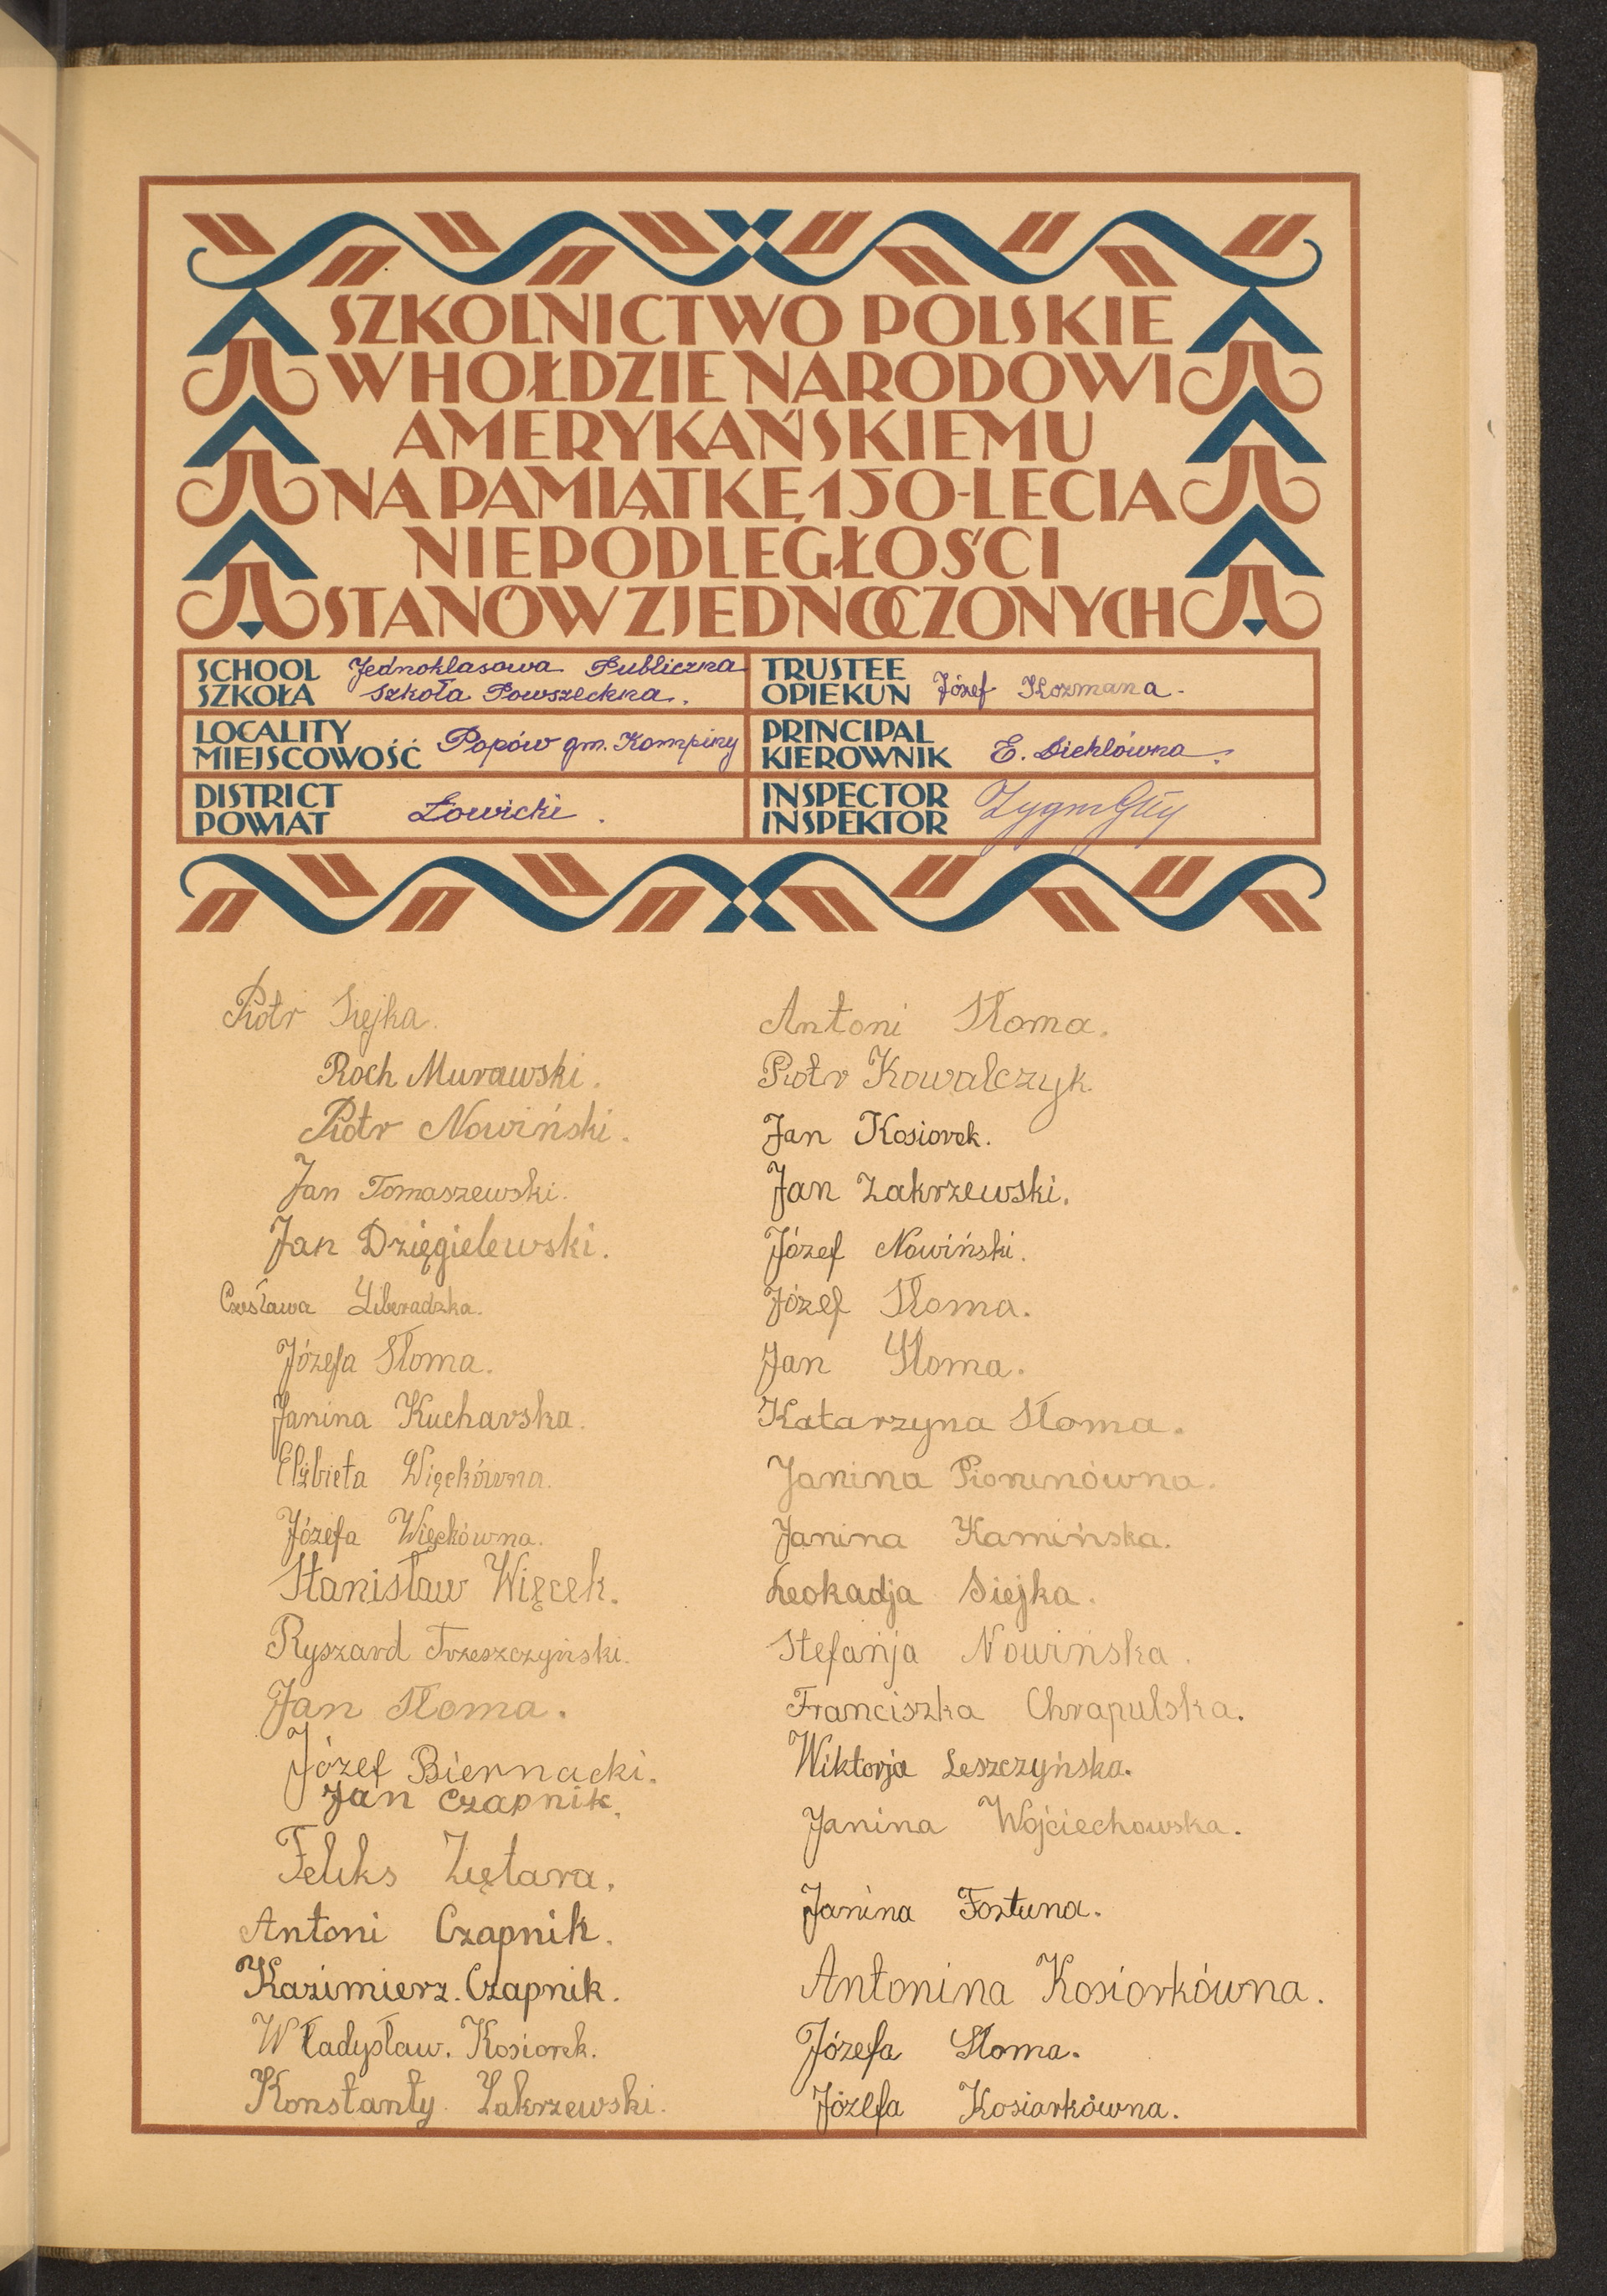 SZKOLNICTWO POLSKIE
W HOŁDZIE NARODOWI
AMERYKAŃSKIEMU
NA PAMIĄTKĘ 150-LECIA
NIEPODLEGŁOŚCI
STANÓW ZJEDNOCZONYCH
SCHOOL
SZKOŁA
Jednoklasowa Publiczna
Szkoła Powszechna.
TRUSTEE
OPIEKUN
Józef Kozmana.
LOCALITY
MIEJSCOWOŚĆ
Popów gm. Kompiny
PRINCIPAL
KIEROWNIK
E. Diehlówna.
DISTRICT
POWIAT
Łowicki.
INSPECTOR
INSPEKTOR
Piotr Siejka.
Roch Murawski.
Piotr Nowiński.
Jan Tomaszewski.
Jan Dzięgielewski.
Czesława Liberadzka.
Józefa Słoma.
Janina Kucharska.
Elżbieta Więckówna.
Józefa Więckówna.
Stanisław Więcek.
Ryszard Trzeszczyński.
Jan Słoma.
Józef Biernacki.
Jan Czapnik.
Feliks Ziętara.
Antoni Czapnik.
Kazimierz. Czapnik.
Władysław. Kosiorek.
Konstanty Zakrzewski.
Antoni Słoma.
Piotr Kowalczyk.
Jan Kosiorek.
Jan Zakrzewski.
Józef Nowiński.
Józef Słoma.
Jan Słoma.
Katarzyna Słoma.
Janina Piorunówna.
Janina Kamińska.
Leokadja Siejka.
Stefanja Nowińska.
Franciszka Chrapulska.
Wiktorja Leszczyńska.
Janina Wojciechowska.
Janina Fortuna.
Antonina Kosiorkówna.
Józefa Słoma.
Józefa Kosiarkówna.